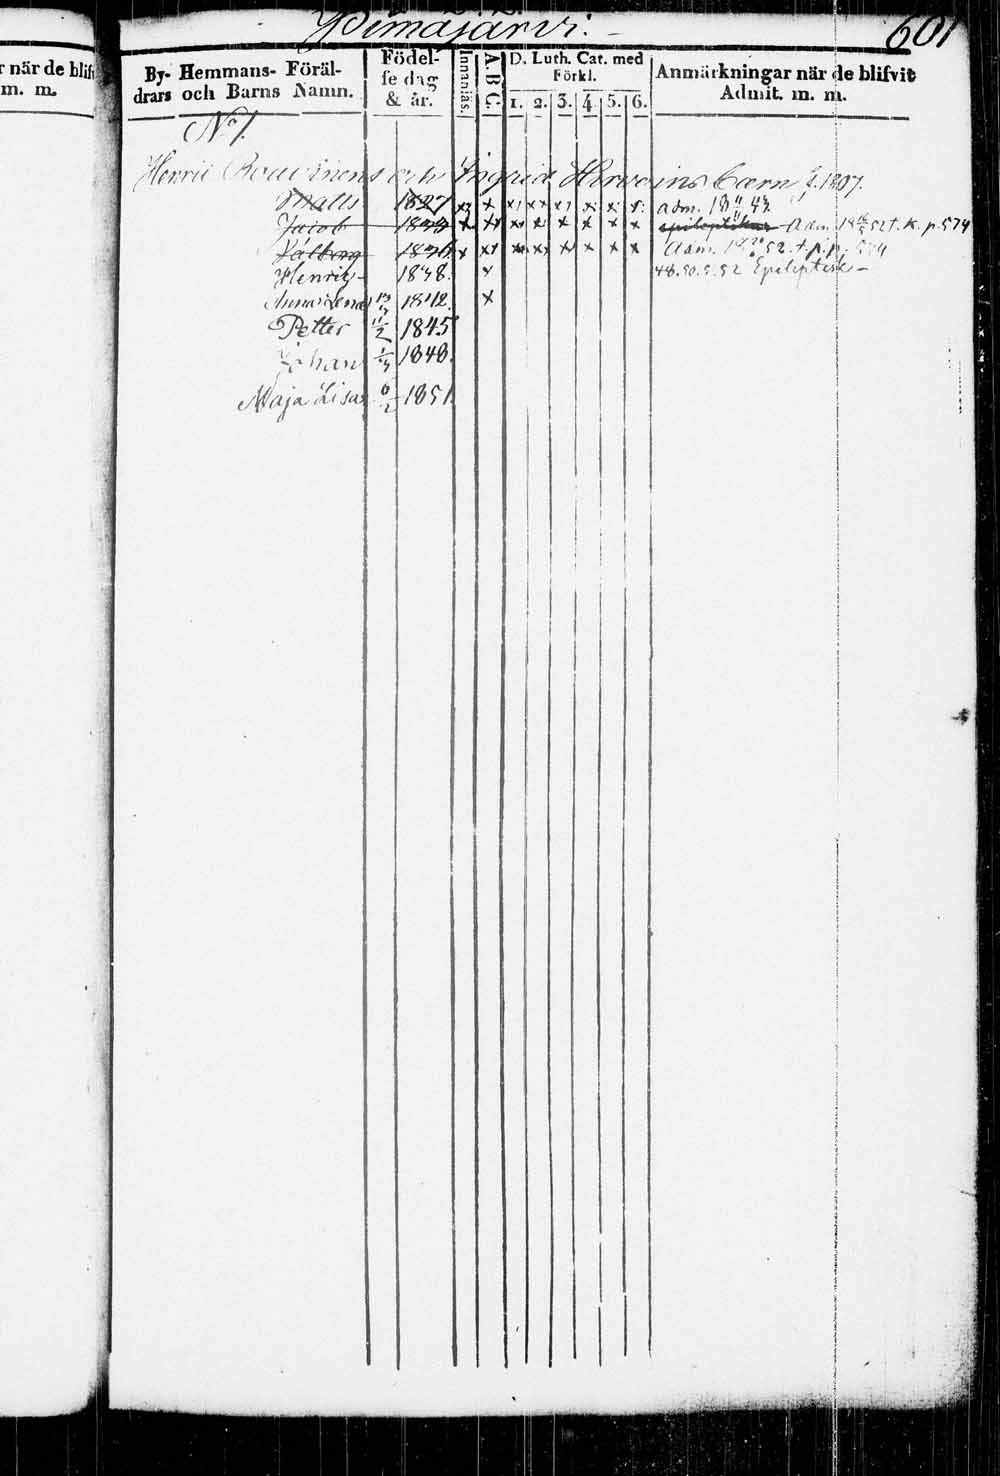 r när de blifv
m. m.
Ypimäjärvi. 601
By- Hemmans- Föräl-
drars och Barns Namn.
Födel-
se dag
& år.
Innanläs.
A. B C.
D. Luth. Cat. med
Förkl.
1. 2. 3. 4. 5. 6.
Anmärkningar när de blifvit
Admit. m. m.
No 1.
Henric och Ingrid Hirvoins barn f. 1807.
Matts 1827 x x x x x x x adm. 18 43
Jacob x x x x x x x x epileptikus Adm. 18 52 t. k. p. 574
Valborg 1836 x x x x x x x x Adm. 52 t. p. p. 574
Henric 1838. x 48. 50. 5. 52 Epileptisk
Anna Lena 1842. x
Petter 11/2 1845
Johan 1848.
Maja Lisa 6/2 1851.